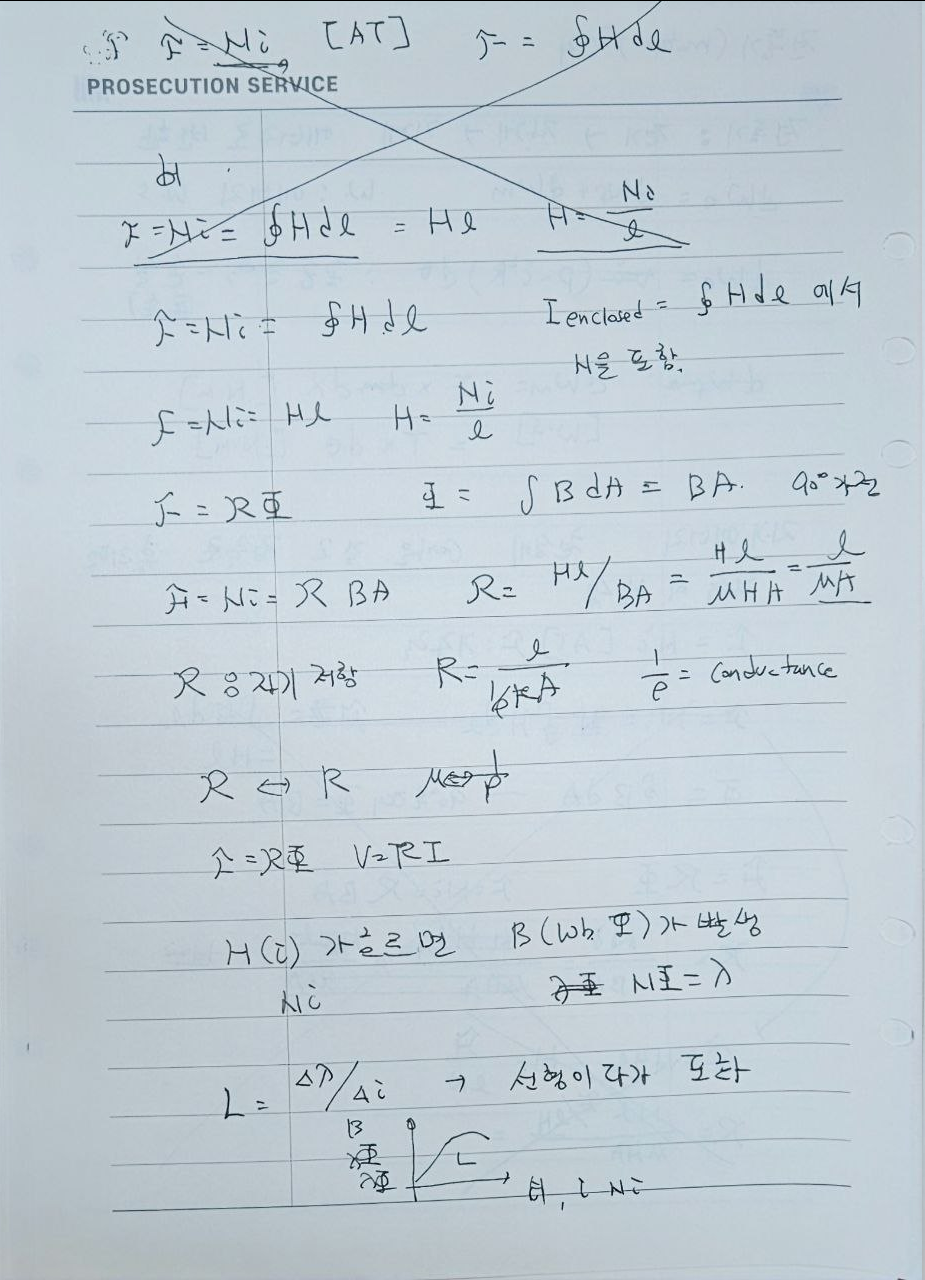 ℱ = Ni [AT] ℱ = ∮H dl
PROSECUTION SERVICE
ℱ = Ni = ∮H dl = Hl H = Ni/l
ℱ = Ni = ∮H dl I enclosed = ∮H dl 에서
N을 포함.
ℱ = Ni = Hl H = Ni/l
ℱ = ℛΦ Φ = ∫B dA = BA. 90° 가정
ℱ = Ni = ℛ BA ℛ = Hl/BA = Hl/μHA = l/μA
ℛ 은 자기 저항 R = l/(1/ρ A) 1/ρ = conductance
ℛ ↔ R μ ↔ 1/ρ
ℱ = ℛΦ V = RI
H(i) 가 흐르면 B(Wb, Φ)가 발생
Ni NΦ = λ
L = Δλ/Δi → 선형이다가 포화
B
λΦ L
λΦ
H, i Ni